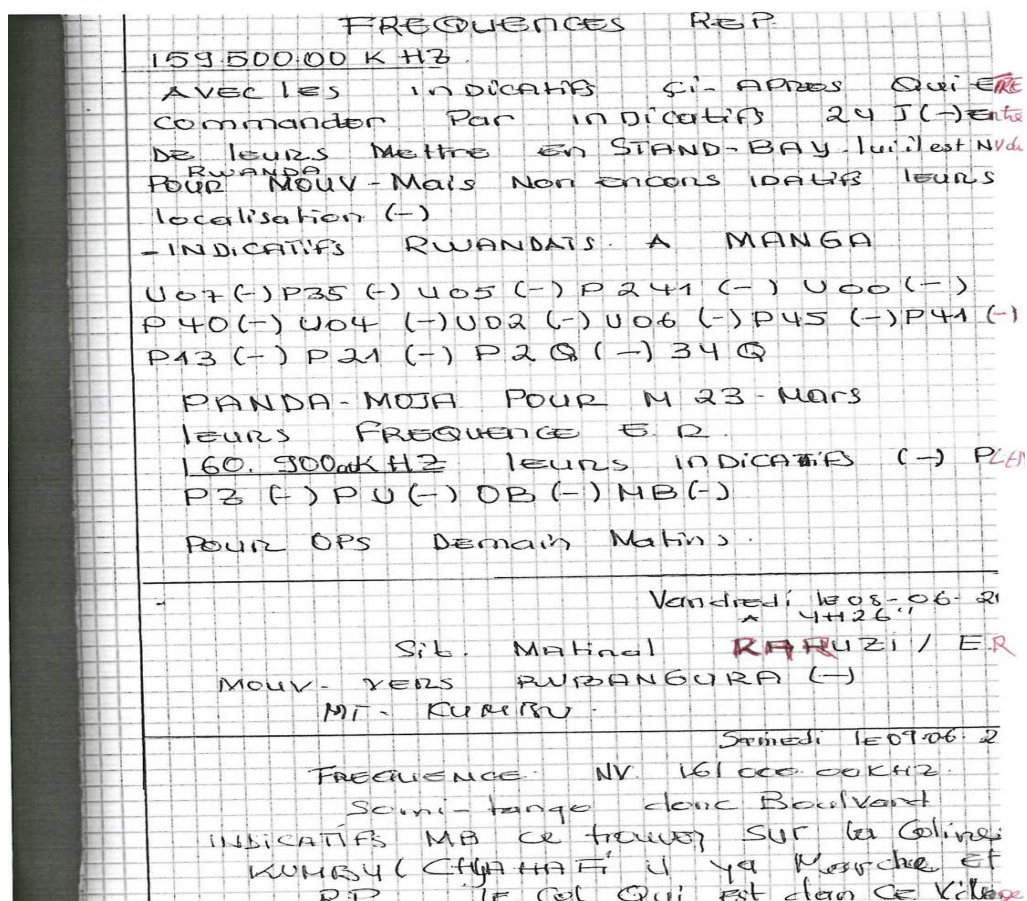 FREQUENCES REP.
159.500.00 K HZ.
AVEC les inDiCAtifs Ci-APRES Qui ETRE
Commander Par inDicatifs 24 J (-) Entre
DE leurs Mettre En STAND-BAY. lui il est NVdu
RWANDA
POUR MOUV - Mais Non encons IDAtifs leurs
localisation (-)
- INDiCATifs RWANDAIS. A MANGA
U07 (-) P35 (-) U05 (-) P 241 (-) U00 (-)
P 40 (-) U04 (-) U02 (-) U06 (-) P45 (-) P41 (-)
P13 (-) P21 (-) P2Q (-) 34Q
PANDA-MOJA POUR M 23-Mars
leurs FREQUENCE E.R.
160.900.00K HZ leurs inDiCATifs (-)
PZ (-) PU (-) OB (-) MB (-)
Pour OPS Demain Matins.
Vandredi le 08-06-
à 4H26''
Sit. Matinal / E.R
MOUV- VERS (-)
MT-
Samedi le 09-06-2
FREQUENCE NV. 161 000.00KHZ.
Semi-tango donc Boulvard
INDICATIFS MB ce trouver sur la Coline
il ya Marche Et
le Col Qui Est dan Ce Village